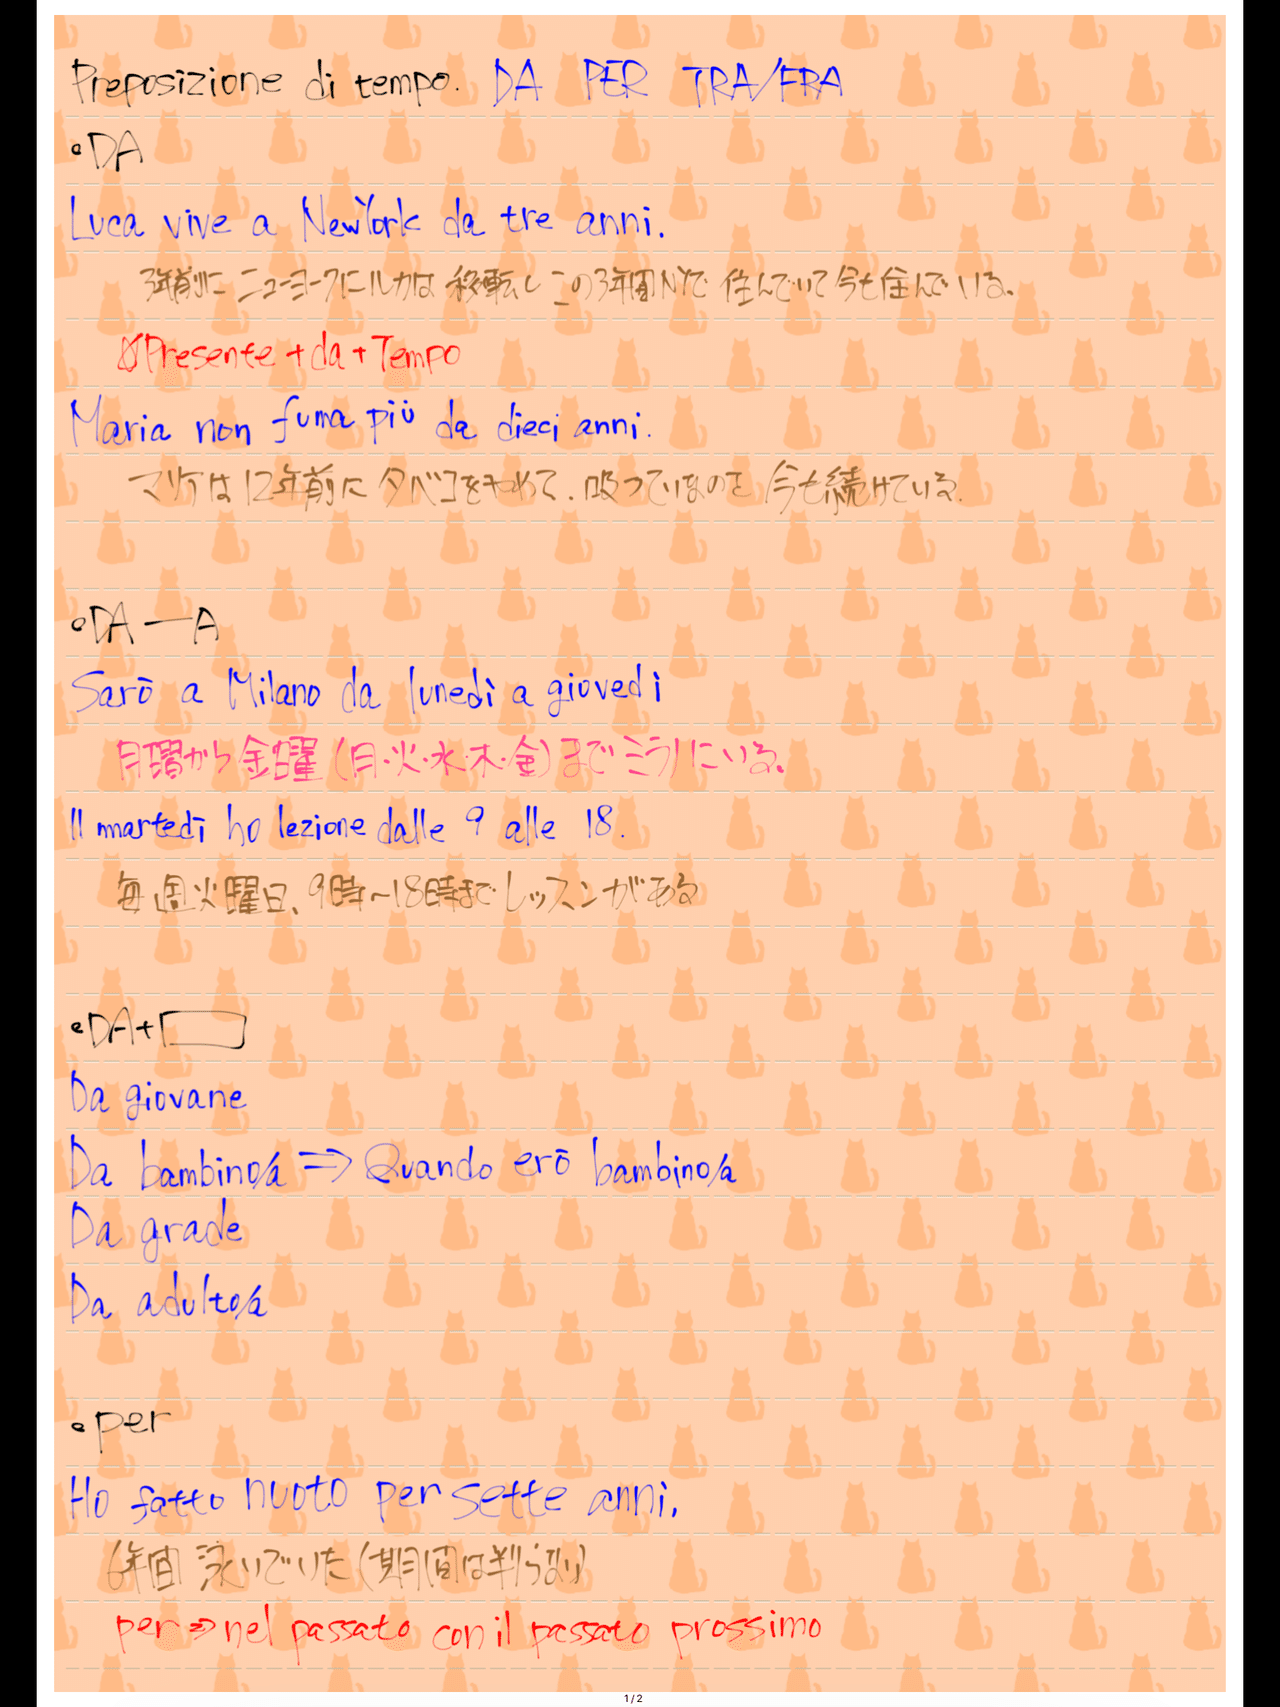 Preposizione di tempo. DA PER TRA/FRA
•DA
Luca vive a NewYork da tre anni.
3年前に ニューヨークにルカは 移転し この3年間NYで 住んでいて今も住んでいる。
Presente + da + Tempo
Maria non fuma più da dieci anni.
マリアは 12年前に タバコをやめて、吸っていないのを 今も続けている。
•DA ― A
Sarō a Milano da lunedì a giovedì
月曜から 金曜 (月・火・水・木・金)まで ミラノにいる。
Il martedī ho lezione dalle 9 alle 18.
毎週火曜日、9時～18時まで レッスンがある
•DA+
Da giovane
Da bambino/a ⇒ Quando erō bambino/a
Da grade
Da adulto/a
•per
Ho fatto nuoto per sette anni.
6年間 泳いでいた (期間は判らない)
per ⇒ nel passato con il passato prossimo
1/2